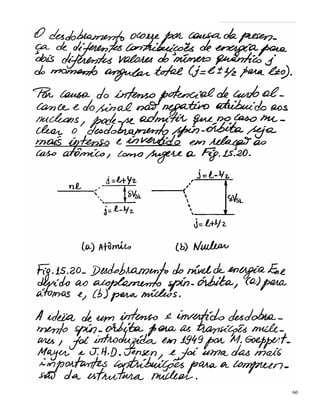 O desdobramento ocorre por causa da presen-
ça de diferentes contribuições de energia para
dois diferentes valores do número quântico j
do momento angular total (j=ℓ±1/2 para ℓ≠0).
Por causa do intenso potencial de curto al-
cance e do sinal não negativo atribuído aos
nucleons, pode-se admitir que no caso nu-
clear o desdobramento spin-órbita seja
mais intenso e invertido em relação ao
caso atômico, como sugere a Fig. 15.20.
j=ℓ+1/2 j=ℓ-1/2
nℓ
δV_SL δV_SL
j=ℓ-1/2
j=ℓ+1/2
(a) Atômico (b) Nuclear
Fig. 15.20_ Desdobramento do nível de energia Enℓ
devido ao acoplamento spin-órbita, (a) para
átomos e, (b) para núcleos.
A ideia de um intenso e invertido desdobra-
mento spin-órbita, para as transições nucle-
ares, foi introduzida em 1949 por M. Goeppert-
Mayer e J.H.D. Jensen, e foi uma das mais
importantes contribuições para a compreen-
são da estrutura nuclear.
60